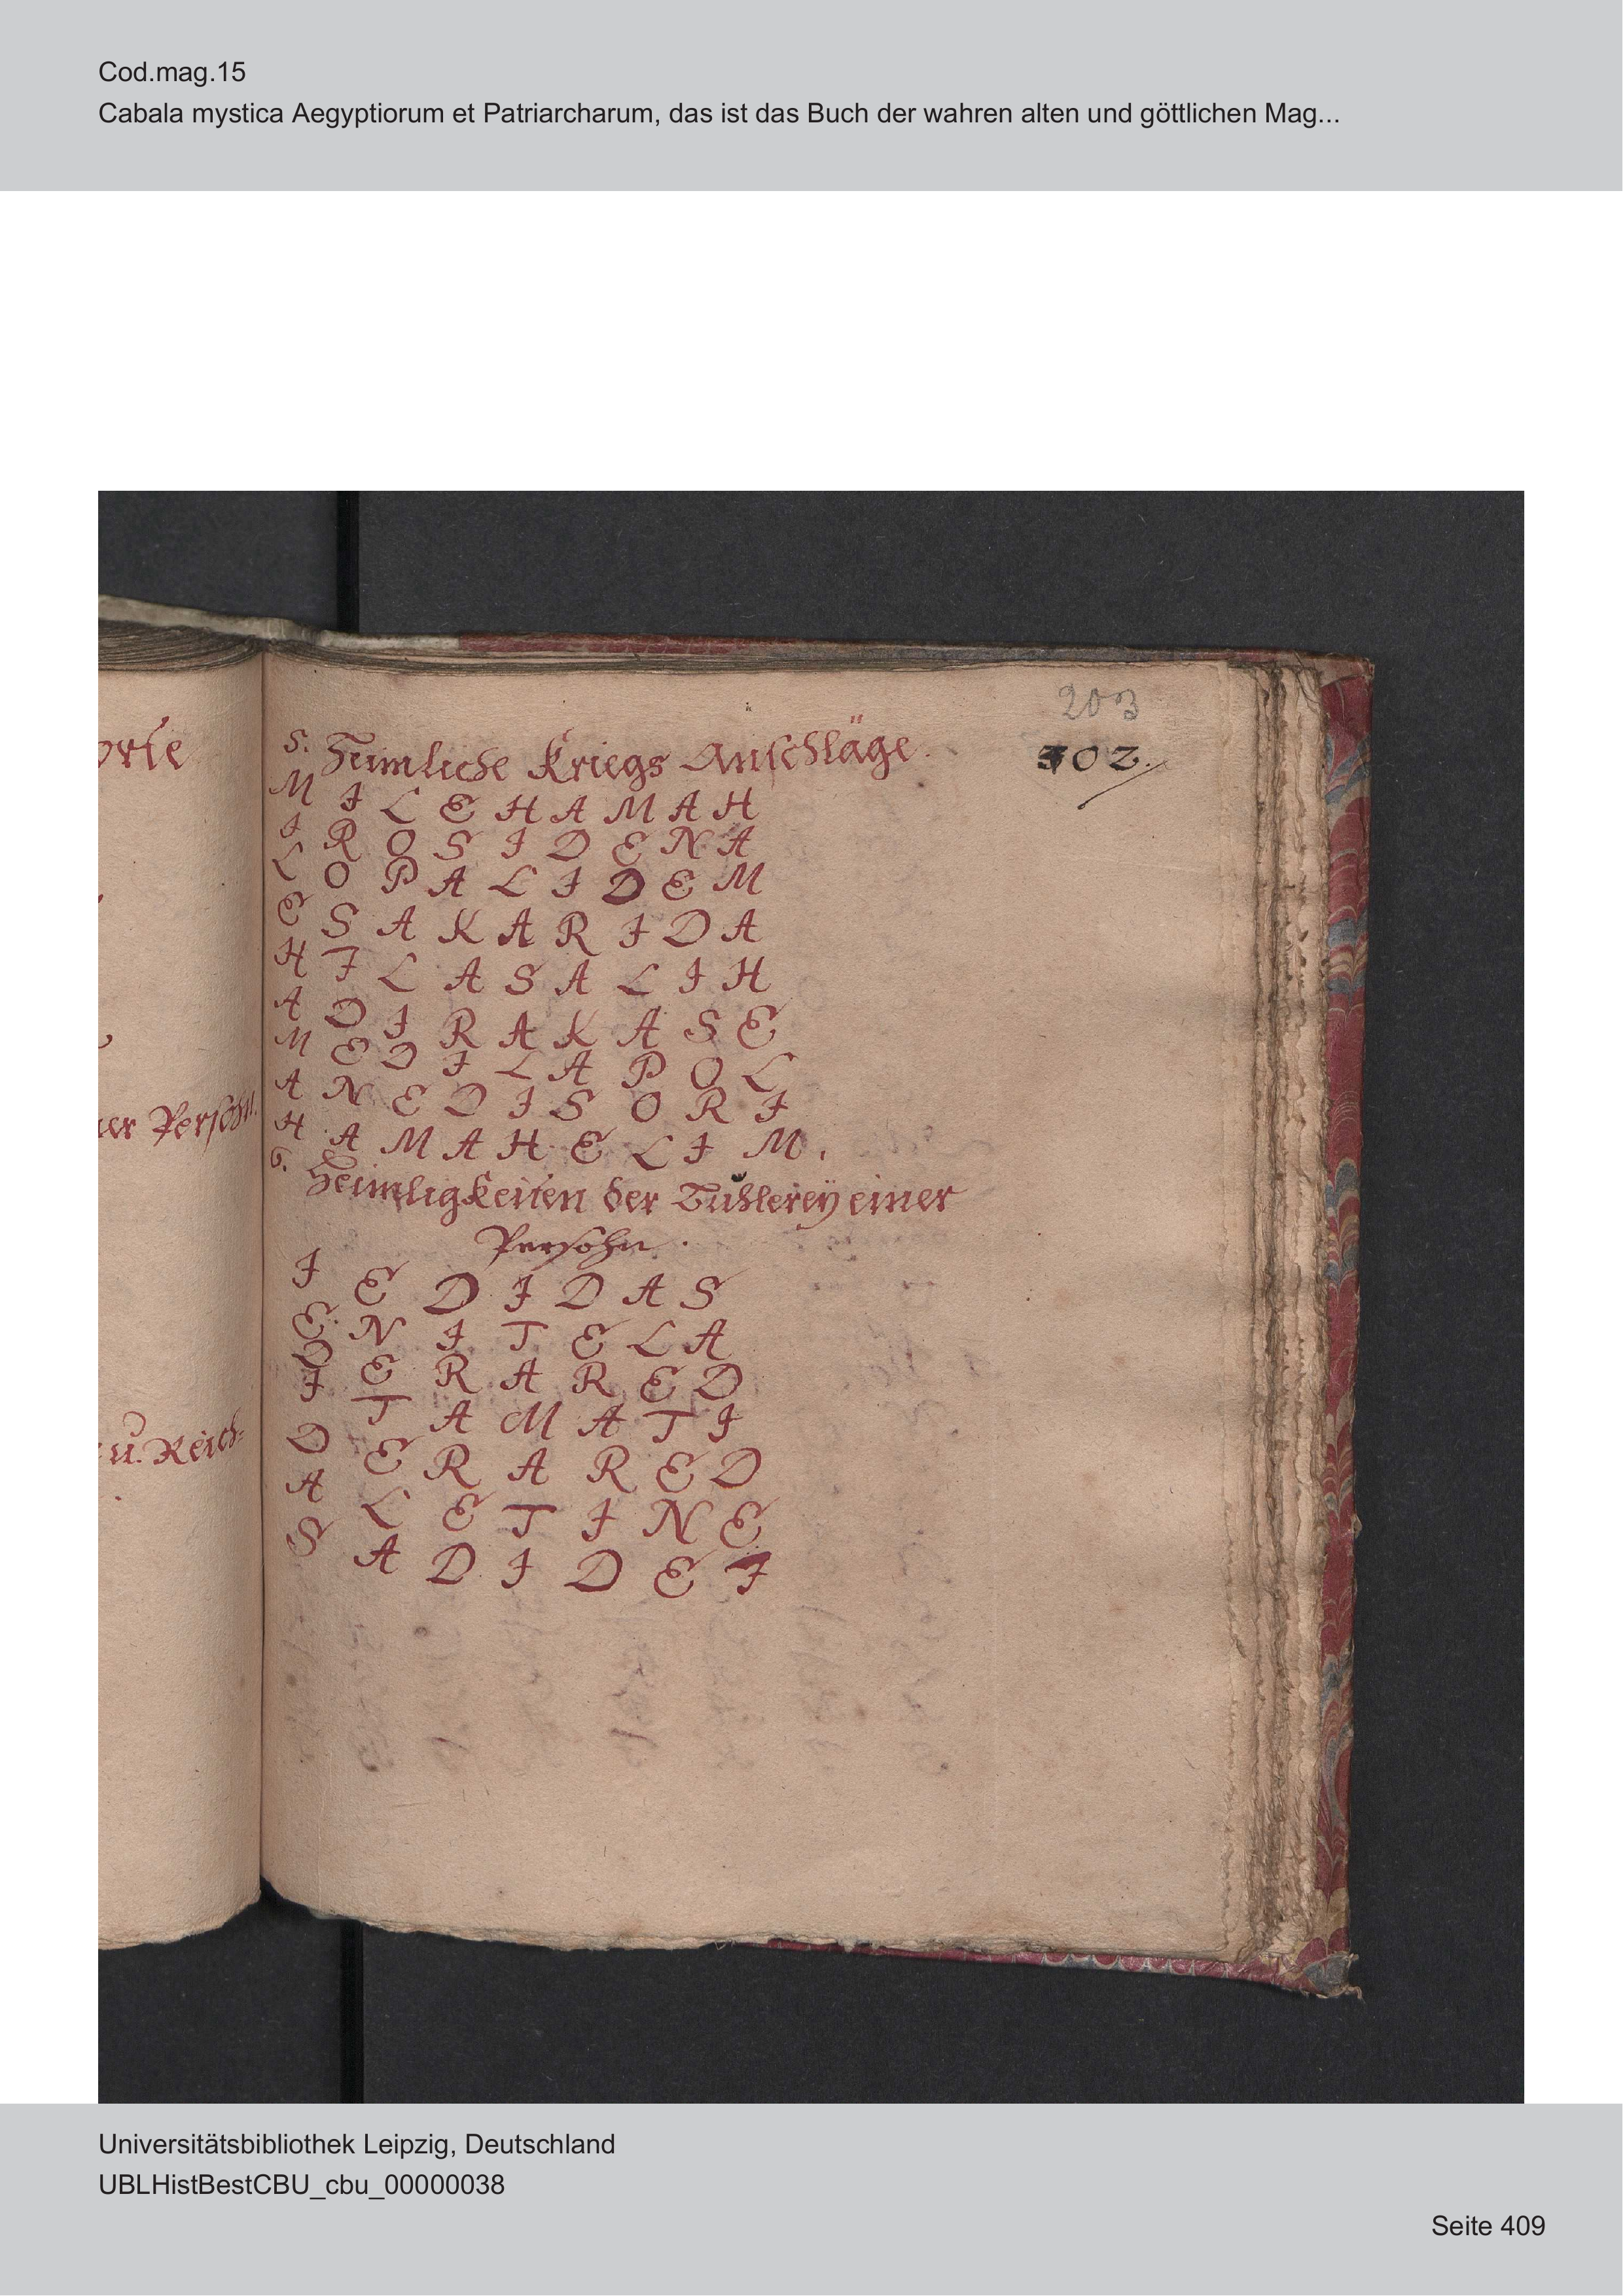 Cod.mag.15
Cabala mystica Aegyptiorum et Patriarcharum, das ist das Buch der wahren alten und göttlichen Mag...
203
302.
5. Heimliche Kriegs Anschläge.
M I L E H A M A H
I R O S I D E N A
L O P A L I D E M
E S A K A R I D A
H I L A S A L I H
A D I R A K A S E
M E D I L A P O L
A N E D I S O R I
H A M A H E L I M.
6. Heimligkeiten der Buhlerey einer
Persohn.
I E D I D A S
E N I T E L A
D E R A R E D
I T A M A T I
D E R A R E D
A L E T I N E
S A D I D E I
er Persohn.
u. Reich-
Universitätsbibliothek Leipzig, Deutschland
UBLHistBestCBU_cbu_00000038
Seite 409